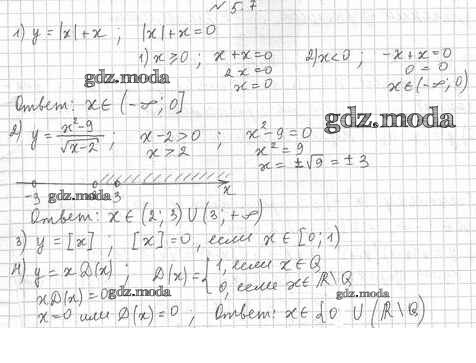 № 5.7
1) y = |x| + x ; |x| + x = 0
1) x ⩾ 0 ; x + x = 0 2) x < 0 ; -x + x = 0
2x = 0 0 = 0
x = 0 x ∈ (-∞; 0)
gdz.moda
Ответ: x ∈ (-∞; 0]
gdz.moda
2) y = (x²-9)/√(x-2) ; x - 2 > 0 ; x² - 9 = 0
x > 2 x² = 9
x = ±√9 = ±3
-3 gdz.moda 3 x
Ответ: x ∈ (2; 3) ∪ (3; +∞)
3) y = [x] ; [x] = 0, если x ∈ [0; 1)
4) y = x D(x) ; D(x) = { 1, если x ∈ Q
0, если x ∈ R\Q
x D(x) = 0 gdz.moda
gdz.moda
x = 0 или D(x) = 0 ; Ответ: x ∈ {0 ∪ (R\Q)